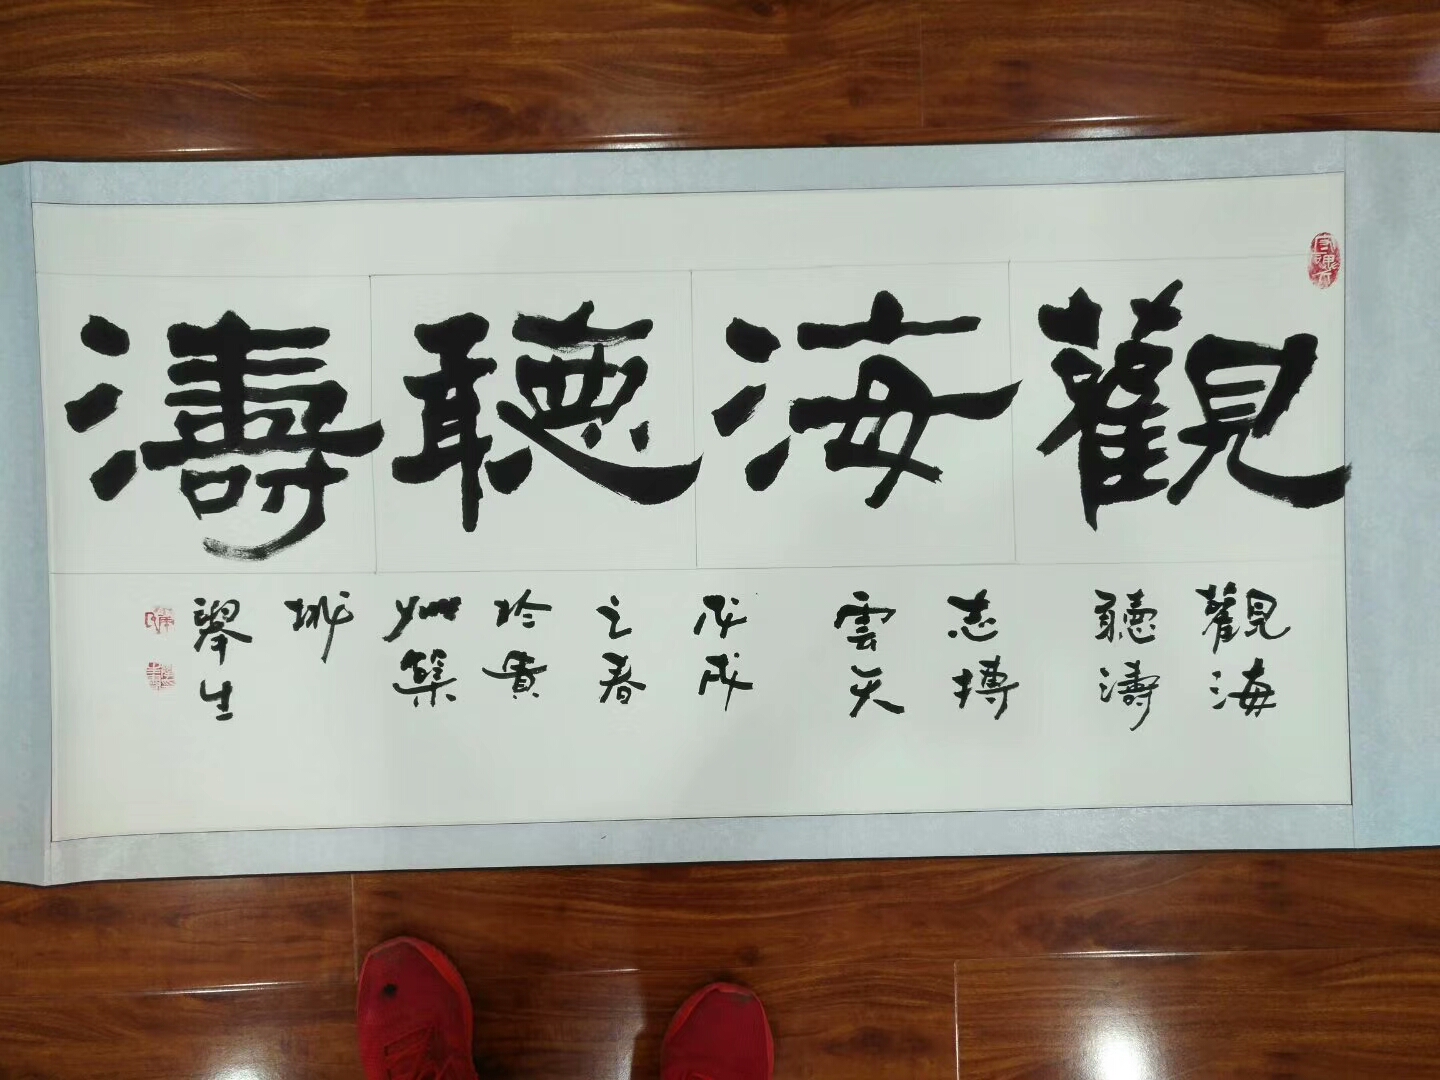 觀海聽濤
觀海
聽濤
志搏
雲天
戊戌
之春
於貴
州築
城
舉生